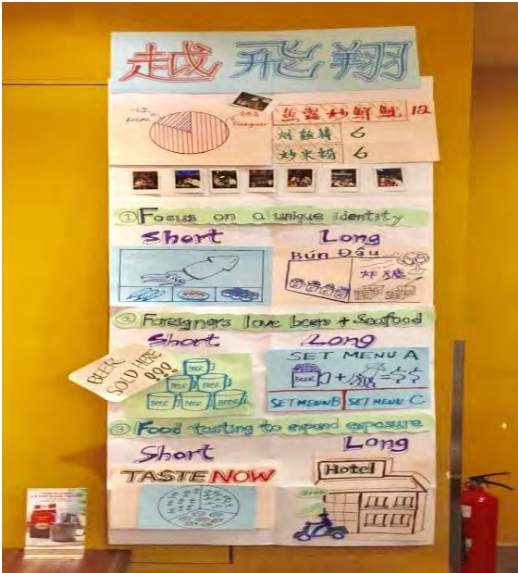 越飛翔
魚露炒鮮魷 12
炒米粉 6
① Focus on a unique identity
Short Long
Bún Đậu
② Foreigners love beers + Seafood
Short Long
BEER
SOLD HERE
SET MENU A
BEER + =
SET MENU B SET MENU C
BEER
BEER BEER
BEER BEER BEER
③ Food tasting to expand exposure
Short Long
TASTE NOW
Hotel